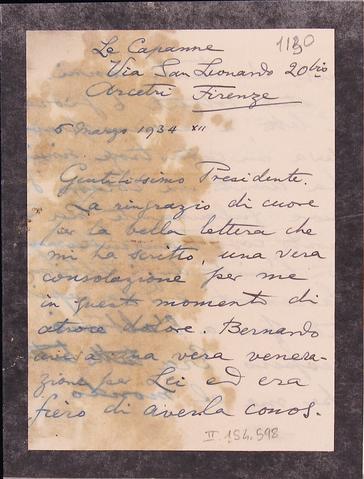 Le Capanne 1130
Via San Leonardo 20bis
Arcetri Firenze
6 Marzo 1934 XII
Gentilissimo Presidente.
La ringrazio di cuore
per la bella lettera che
mi ha scritto, una vera
consolazione per me
in questi momenti di
atroce dolore. Bernardo
aveva una vera venera-
zione per Lei ed era
fiero di averla conos.
II. 154.598